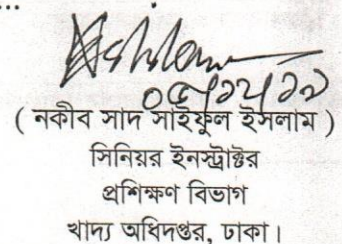 ...
০৫/১২/১৯
( নকীব সাদ সাইফুল ইসলাম )
সিনিয়র ইনস্ট্রাক্টর
প্রশিক্ষণ বিভাগ
খাদ্য অধিদপ্তর, ঢাকা।